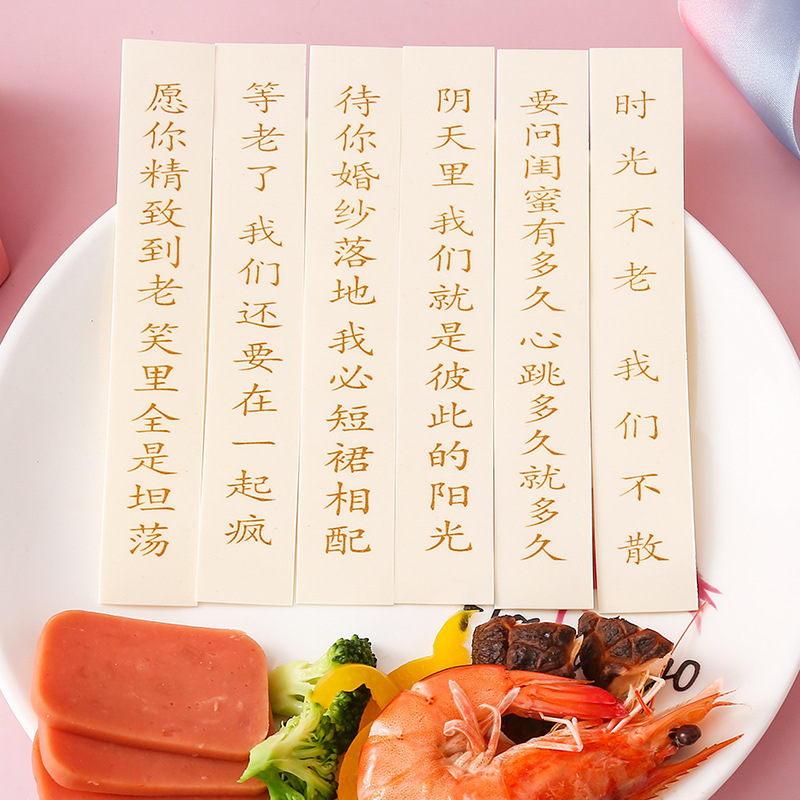 愿你精致到老 笑里全是坦荡
等老了 我们还要在一起疯
待你婚纱落地 我必短裙相配
阴天里 我们就是彼此的阳光
要问闺蜜有多久 心跳多久就多久
时光不老 我们不散